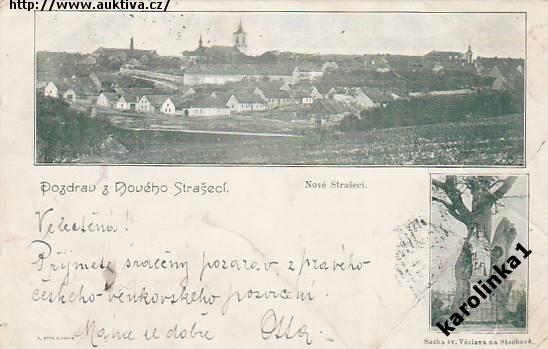 http://www.auktiva.cz/
Pozdrav z Nového Strašecí.
Nové Strašecí.
Velectěná!
Přijmete srdečný pozdrav z pravého
českého venkovského posvícení.
Máme se dobře Otta
Socha sv. Václava na Stochově.
karolinka1